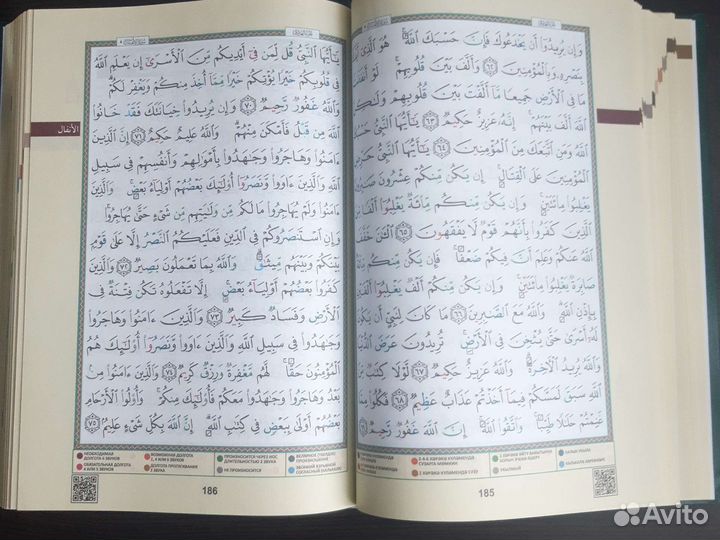 وَإِن يُرِيدُوٓا۟ أَن يَخْدَعُوكَ فَإِنَّ حَسْبَكَ ٱللَّهُ ۚ هُوَ ٱلَّذِىٓ
بِنَصْرِهِۦ وَبِٱلْمُؤْمِنِينَ ٦٢ وَأَلَّفَ بَيْنَ قُلُوبِهِمْ ۚ لَوْ
مَا فِى ٱلْأَرْضِ جَمِيعًا مَّآ أَلَّفْتَ بَيْنَ قُلُوبِهِمْ وَلَٰكِنَّ
ٱللَّهَ أَلَّفَ بَيْنَهُمْ ۚ إِنَّهُۥ عَزِيزٌ حَكِيمٌ ٦٣ يَٰٓأَيُّهَا ٱلنَّبِىُّ
ٱللَّهُ وَمَنِ ٱتَّبَعَكَ مِنَ ٱلْمُؤْمِنِينَ ٦٤ يَٰٓأَيُّهَا ٱلنَّبِىُّ حَرِّضِ
ٱلْمُؤْمِنِينَ عَلَى ٱلْقِتَالِ ۚ إِن يَكُن مِّنكُمْ عِشْرُونَ صَٰبِرُونَ
يَغْلِبُوا۟ مِا۟ئَتَيْنِ ۚ وَإِن يَكُن مِّنكُم مِّا۟ئَةٌ يَغْلِبُوٓا۟ أَلْفًا مِّنَ
ٱلَّذِينَ كَفَرُوا۟ بِأَنَّهُمْ قَوْمٌ لَّا يَفْقَهُونَ ٦٥ ٱلْـَٰٔنَ خَفَّفَ
ٱللَّهُ عَنكُمْ وَعَلِمَ أَنَّ فِيكُمْ ضَعْفًا ۚ فَإِن يَكُن مِّنكُم مِّا۟ئَةٌ
صَابِرَةٌ يَغْلِبُوا۟ مِا۟ئَتَيْنِ ۚ وَإِن يَكُن مِّنكُمْ أَلْفٌ يَغْلِبُوٓا۟ أَلْفَيْنِ
بِإِذْنِ ٱللَّهِ ۗ وَٱللَّهُ مَعَ ٱلصَّٰبِرِينَ ٦٦ مَا كَانَ لِنَبِىٍّ أَن يَكُونَ
لَهُۥٓ أَسْرَىٰ حَتَّىٰ يُثْخِنَ فِى ٱلْأَرْضِ ۚ تُرِيدُونَ عَرَضَ ٱلدُّنْيَا
وَٱللَّهُ يُرِيدُ ٱلْـَٔاخِرَةَ ۗ وَٱللَّهُ عَزِيزٌ حَكِيمٌ ٦٧ لَّوْلَا كِتَٰبٌ مِّنَ
ٱللَّهِ سَبَقَ لَمَسَّكُمْ فِيمَآ أَخَذْتُمْ عَذَابٌ عَظِيمٌ ٦٨ فَكُلُوا۟ مِمَّا
غَنِمْتُمْ حَلَٰلًا طَيِّبًا ۚ وَٱتَّقُوا۟ ٱللَّهَ ۚ إِنَّ ٱللَّهَ غَفُورٌ رَّحِيمٌ
185
يَٰٓأَيُّهَا ٱلنَّبِىُّ قُل لِّمَن فِىٓ أَيْدِيكُم مِّنَ ٱلْأَسْرَىٰٓ إِن يَعْلَمِ ٱللَّهُ
فِى قُلُوبِكُمْ خَيْرًا يُؤْتِكُمْ خَيْرًا مِّمَّآ أُخِذَ مِنكُمْ وَيَغْفِرْ لَكُمْ ۗ
وَٱللَّهُ غَفُورٌ رَّحِيمٌ ٧٠ وَإِن يُرِيدُوا۟ خِيَانَتَكَ فَقَدْ خَانُوا۟
ٱللَّهَ مِن قَبْلُ فَأَمْكَنَ مِنْهُمْ ۗ وَٱللَّهُ عَلِيمٌ حَكِيمٌ ٧١ إِنَّ ٱلَّذِينَ
ءَامَنُوا۟ وَهَاجَرُوا۟ وَجَٰهَدُوا۟ بِأَمْوَٰلِهِمْ وَأَنفُسِهِمْ فِى سَبِيلِ
ٱللَّهِ وَٱلَّذِينَ ءَاوَوا۟ وَّنَصَرُوٓا۟ أُو۟لَٰٓئِكَ بَعْضُهُمْ أَوْلِيَآءُ بَعْضٍ ۚ وَٱلَّذِينَ
ءَامَنُوا۟ وَلَمْ يُهَاجِرُوا۟ مَا لَكُم مِّن وَلَٰيَتِهِم مِّن شَىْءٍ حَتَّىٰ يُهَاجِرُوا۟ ۚ
وَإِنِ ٱسْتَنصَرُوكُمْ فِى ٱلدِّينِ فَعَلَيْكُمُ ٱلنَّصْرُ إِلَّا عَلَىٰ قَوْمٍۭ
بَيْنَكُمْ وَبَيْنَهُم مِّيثَٰقٌ ۗ وَٱللَّهُ بِمَا تَعْمَلُونَ بَصِيرٌ ٧٢ وَٱلَّذِينَ
كَفَرُوا۟ بَعْضُهُمْ أَوْلِيَآءُ بَعْضٍ ۚ إِلَّا تَفْعَلُوهُ تَكُن فِتْنَةٌ فِى
ٱلْأَرْضِ وَفَسَادٌ كَبِيرٌ ٧٣ وَٱلَّذِينَ ءَامَنُوا۟ وَهَاجَرُوا۟
وَجَٰهَدُوا۟ فِى سَبِيلِ ٱللَّهِ وَٱلَّذِينَ ءَاوَوا۟ وَّنَصَرُوٓا۟ أُو۟لَٰٓئِكَ هُمُ
ٱلْمُؤْمِنُونَ حَقًّا ۚ لَّهُم مَّغْفِرَةٌ وَرِزْقٌ كَرِيمٌ ٧٤ وَٱلَّذِينَ ءَامَنُوا۟ مِنۢ
بَعْدُ وَهَاجَرُوا۟ وَجَٰهَدُوا۟ مَعَكُمْ فَأُو۟لَٰٓئِكَ مِنكُمْ ۚ وَأُو۟لُوا۟ ٱلْأَرْحَامِ
بَعْضُهُمْ أَوْلَىٰ بِبَعْضٍ فِى كِتَٰبِ ٱللَّهِ ۗ إِنَّ ٱللَّهَ بِكُلِّ شَىْءٍ عَلِيمٌۢ ٧٥
الأنفال
НЕОБХОДИМАЯ ДОЛГОТА 6 ЗВУКОВ
ВОЗМОЖНАЯ ДОЛГОТА 2, 4, 6 ЗВУКОВ
ПРОИЗНОСИТСЯ ЧЕРЕЗ НОС ДЛИТЕЛЬНОСТЬЮ 2 ЗВУКА
ОБЯЗАТЕЛЬНАЯ ДОЛГОТА 4 ИЛИ 5 ЗВУКОВ
ДОЛГОТА ПРОТЯГИВАНИЯ 2 ЗВУКА
НЕ ПРОИЗНОСИТСЯ
186
Avito